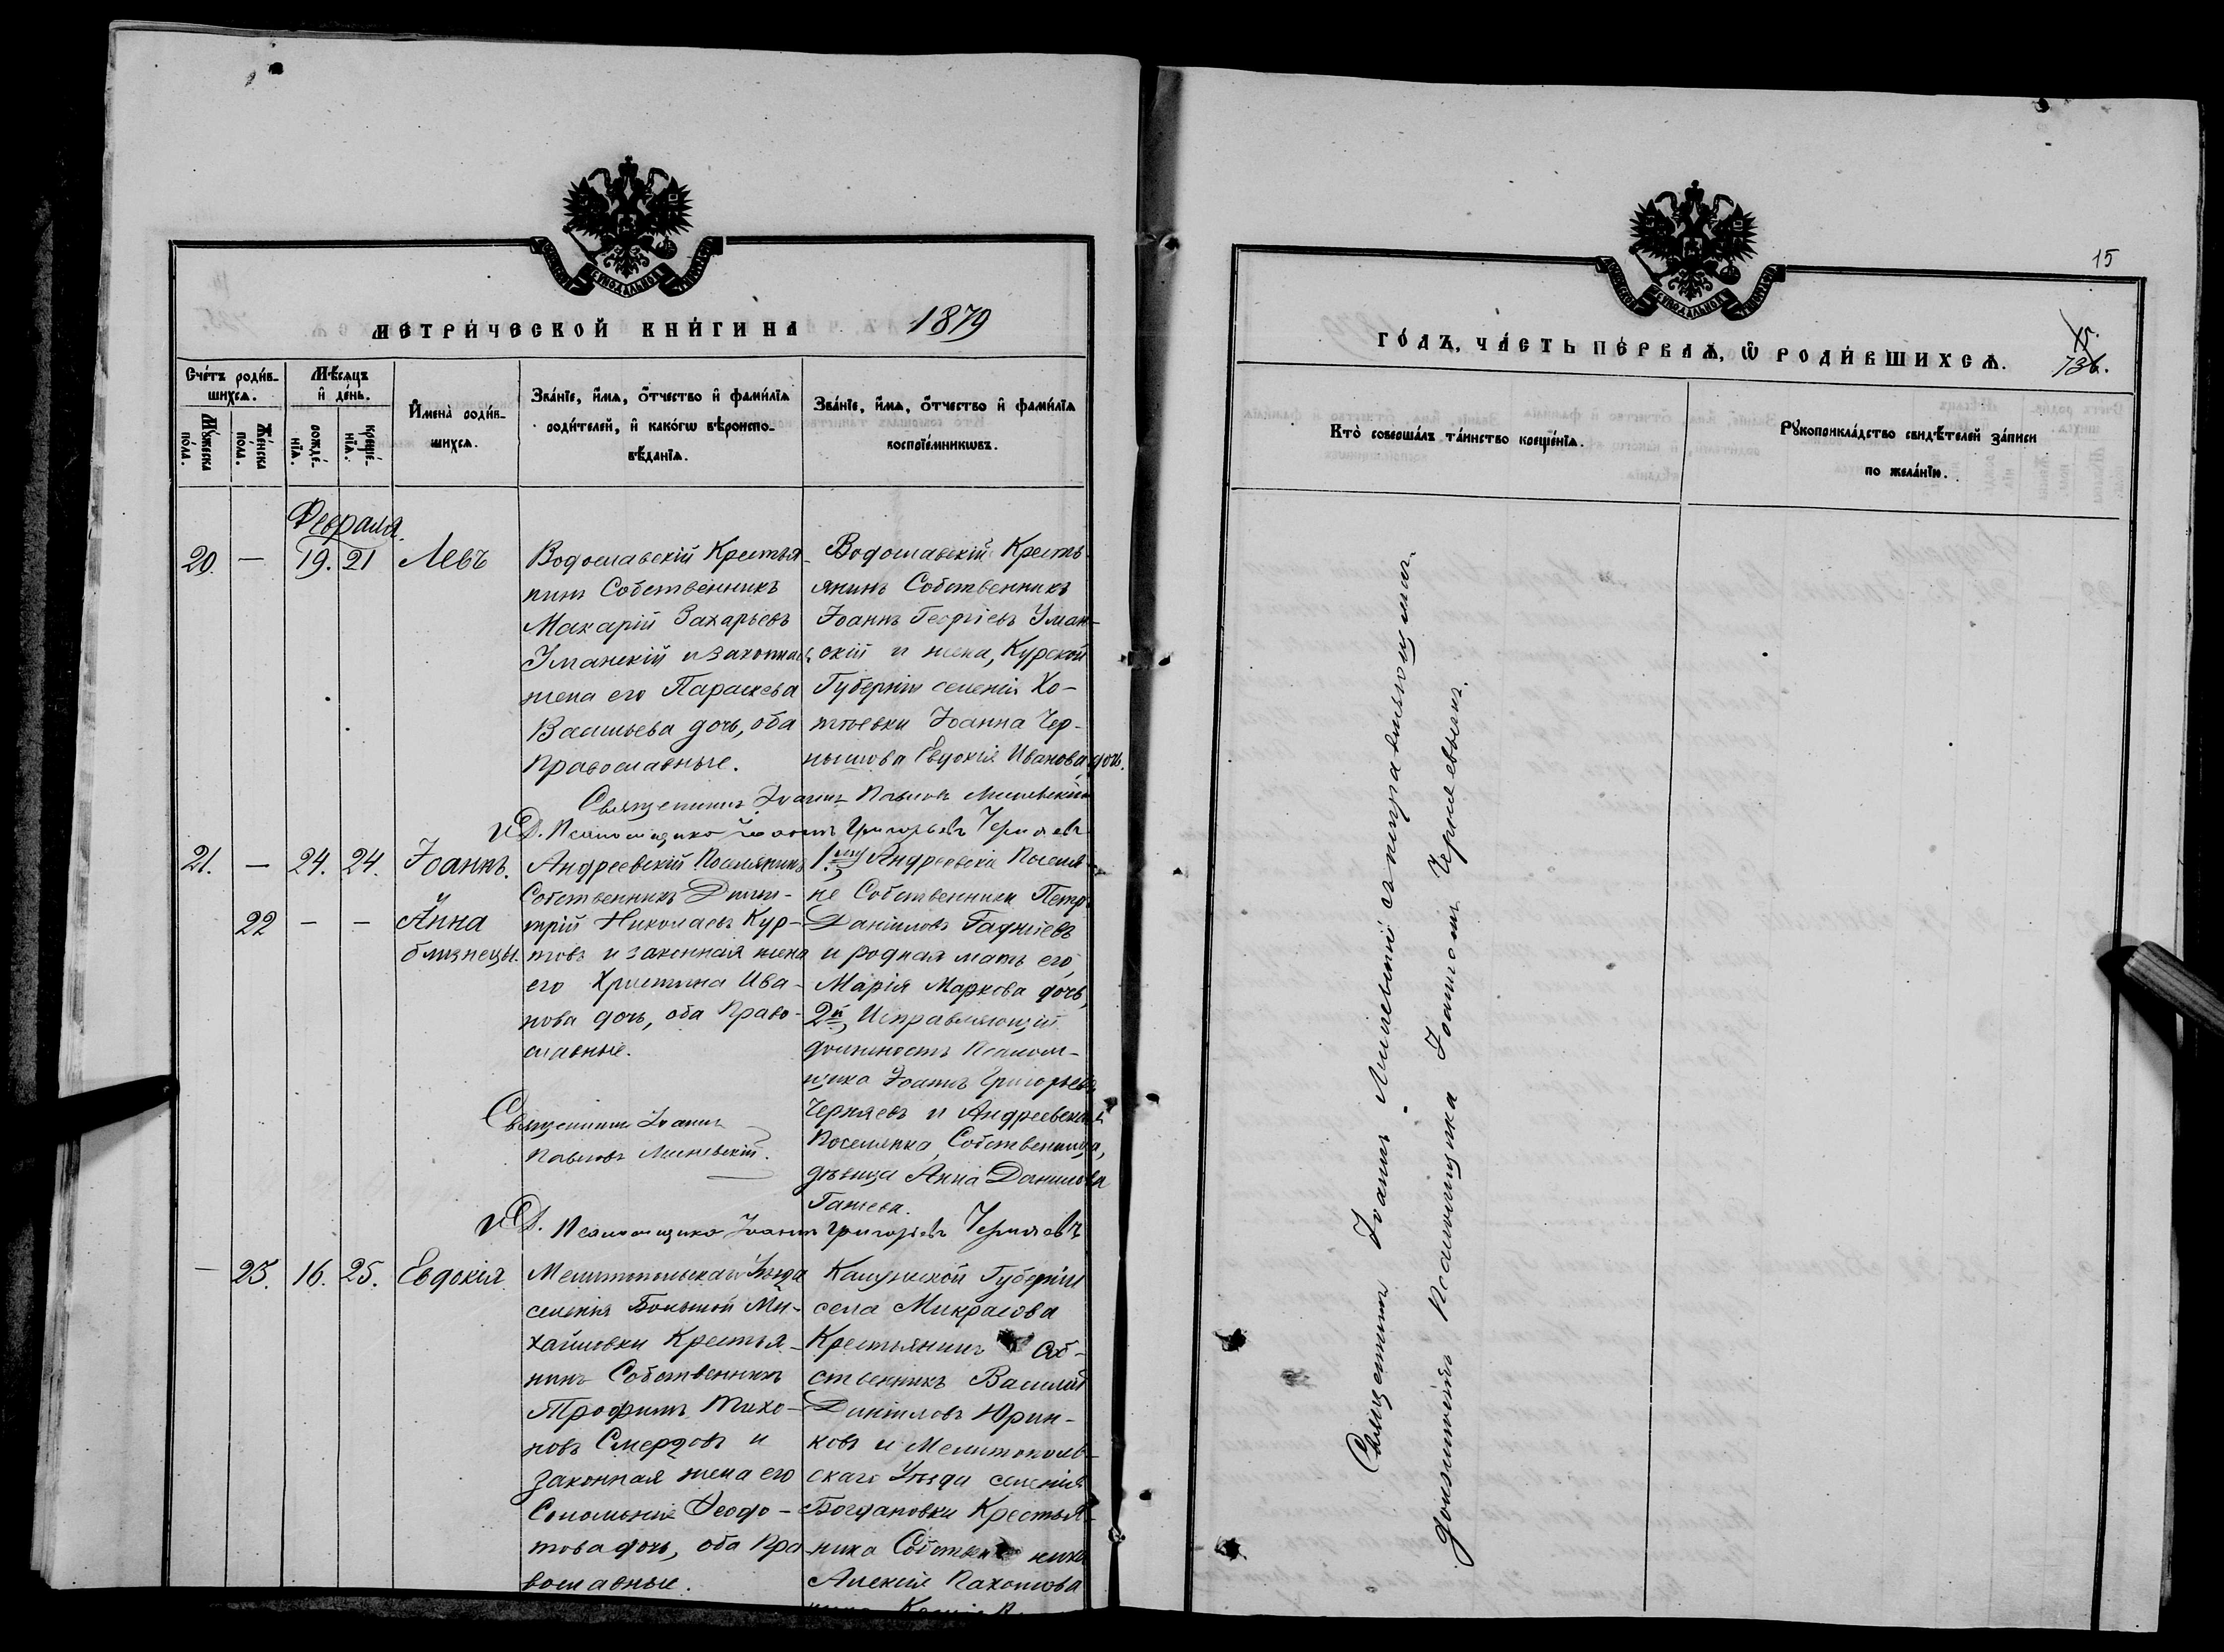 МЕТРИ́ЧЕСКОЙ КНИ́ГИ НА 1879
Сче́тъ роди́в-
шихсѧ.
Мѣ́сѧцъ
и҆ де́нь.
И҆мена̀ роди́в-
шихсѧ.
Зва́нїе, и҆́мѧ, ѻ҆́тчество и҆ фами́лїѧ
роди́телей, и҆ како́гѡ вѣроиспо-
вѣ́данїѧ.
Зва́нїе, и҆́мѧ, ѻ҆́тчество и҆ фами́лїѧ
воспрїе́мникѡвъ.
Мꙋ́жеска
по́ла.
Же́нска
по́ла.
рожде́-
нїѧ.
креще́-
нїѧ.
Февраля.
20. — 19. 21 Левъ
Водославскій Крестья-
нинъ Собственникъ
Макарій Захарьевъ
Уманскій и законная
жена его Параскева
Васильева дочь, оба
Православные.
Водославскій Кресть-
янинъ Собственникъ
Іоаннъ Георгіевъ Уман-
скій и жена, Курской
Губерніи селенія Хо-
Іоанна Чер-
нышова Евдокія Иванова дочь.
Священникъ Іоаннъ Павловъ
И.Д. Псаломщика Іоаннъ Григорьевъ Черняевъ
21. — 24. 24. Іоаннъ.
и
22 — — Анна
близнецы.
Андреевскій Поселянинъ
Собственникъ Дими-
трій Николаевъ Кур-
товъ и законная жена
его Христина Ива-
нова дочь, оба Право-
славные.
1.й, Андреевскіе Поселя-
не Собственники Петръ
Даніиловъ
и родная мать его,
Марія Маркова дочь,
2й, Исправляющій
должность Псалом-
щика Іоаннъ Григорьевъ
Черняевъ и Андреевская
Поселянка, Собственница,
дѣвица Анна Данилова
Священникъ Іоаннъ
Павловъ
И.Д. Псаломщика Іоаннъ Григорьевъ Черняевъ
— 23. 16. 25. Евдокія
Мелитопольскаго Уѣзда
селенія Большой Ми-
хайловки Крестья-
нинъ Собственникъ
Трофимъ Тихо-
новъ Смердовъ и
законная жена его
Соломонія Феодо-
това дочь, оба Пра-
вославные.
Калужской Губерніи
села
Крестьянинъ Соб-
ственникъ Василій
Даніиловъ Юрин-
ковъ и Мелитополь-
скаго Уѣзда селенія
Богдановки Крестья-
нина
Алексія Пахомова
15
ГО́ДЪ, ЧА́СТЬ ПЕ́РВАѦ, Ѡ҆ РОДИ́ВШИХСѦ.
15.
736.
Кто̀ соверша́лъ та́инство креще́нїѧ.
Рꙋкоприкла́дство свидѣ́телей за́писи
по жела́нїю.
Священникъ Іоаннъ съ исправляющимъ
должность Псаломщика Іоанномъ Черняевымъ.